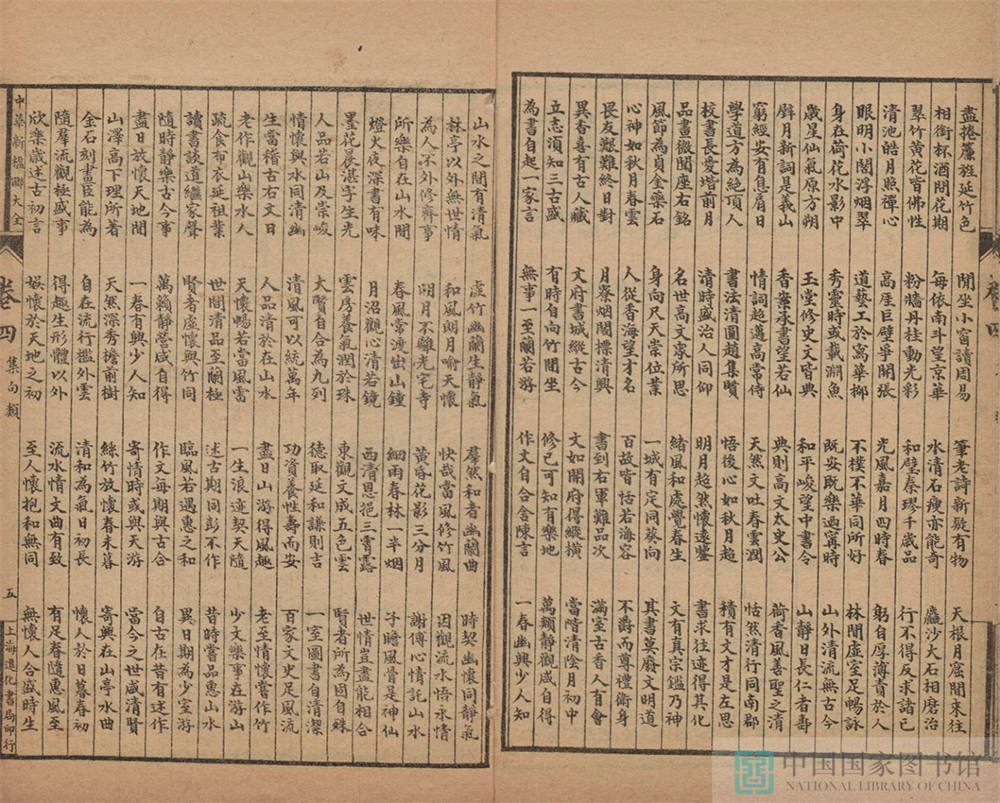 盡捲簾旌延竹色 閒坐小窗讀周易 筆老詩新疑有物 天根月窟閒來往
相銜杯酒問花期 每依南斗望京華 水清石瘦亦能奇 麤沙大石相磨治
翠竹黃花皆佛性 粉牆丹柱動光彩 和璧秦璆千歲品 行不得反求諸己
清池皓月照禪心 高厓巨壁爭開張 光風嘉月四時春 躬自厚薄責於人
眼明小閣浮烟翠 道藝工於寓華 不樸不華同所好 林間虛室足暢詠
身在荷花水影中 秀靈時或載澗魚 既安既樂迺寗時 山外清流無古今
歲星仙氣原方朔 玉堂修史文皆典 和平峻望中書令 山靜日長仁者壽
璧月新詞是義山 香案承書望若仙 典則高文太史公 荷香風善聖之清
窮經安有息肩日 情詞超邁高常侍 天然文吐春雲潤 怡然清行同南郡
學道方為絕頂人 書法清圓趙集賢 悟後心如秋月超 積有文才是左思
校書長愛堦前月 清時盛治人同仰 明月超然懷遠鑒 書求往迹得其化
品畫微聞座右銘 名世高文家所思 緒風和處覺春生 文有真宗鑑乃神
風節為貞金樂石 身向尺天崇位業 一城有定同葵向 其書莫廢文明道
心神如秋月春雲 人從香海望才名 百故皆恬若海容 不爵而尊禮衛身
畏友艱難終日對 月寮烟閣標清興 書到右軍難品次 滿室古香人有會
異香喜有古人藏 文府書城縱古今 文如開府得縱橫 當階清陰月初中
立志須知三古盛 有時自向竹間坐 修己可知有樂地 萬類靜觀咸自得
為書自起一家言 無事一至蘭若游 作文自合舍陳言 一春幽興少人知
山水之間有清氣 虛竹幽蘭生靜氣 羣然和者幽蘭曲 時契幽懷同靜氣
林亭以外無世情 和風朗月喻天懷 快哉當風修竹風 因觀流水悟永情
為人不外修齊事 明月不離光宅寺 黃昏花影三分月 謝傅心情託山水
所樂自在山水間 春風常渡出山鐘 細雨春林一半烟 子瞻風骨是神仙
燈火夜深書有味 月沼觀心清若鏡 西清思挹三霄露 世情豈盡能相合
墨花晨湛字生光 雲房養氣潤於珠 東觀文成五色雲 賢者所為固自殊
人品若山及崇峻 大賢自合為九列 德取延和謙則吉 一室圖書自清潔
情懷與水同清幽 清風可以統萬年 功資養性壽而安 百家文史足風流
生當稽古右文日 人品清於在山水 盡日山游得風趣 老至情懷嘗作竹
老作觀山樂水人 天懷暢若當風雷 一生浪迹契天隨 少文樂事在游山
疏食布衣延祖業 世間清品至蘭極 述古期同彭不作 昔時嘗品惠山水
讀書談道繼家聲 賢者虛懷與竹同 臨風若遇惠之和 異日期為少室游
隨時靜樂古今事 萬籟靜營咸自得 作文每期與古合 自古在昔有述作
盡日放懷天地間 一卷有興少人知 寄情時或與天游 當今之世咸清賢
山澤高下理所著 天然深秀檐前樹 絲竹放懷春未暮 寄興在山亭水曲
金石刻畫臣能為 自在流行檻外雲 清和為氣日初長 懷人於日暮春初
隨羣流觀極盛事 得趣生形體以外 流水情文曲有致 有足春隨惠風至
欣樂咸述古初言 娛懷於天地之初 至人懷抱和無同 無懷人合盛時生
中華新楹聯大全 卷四 集句類 五 上海進化書局印行
中国国家图书馆
NATIONAL LIBRARY OF CHINA